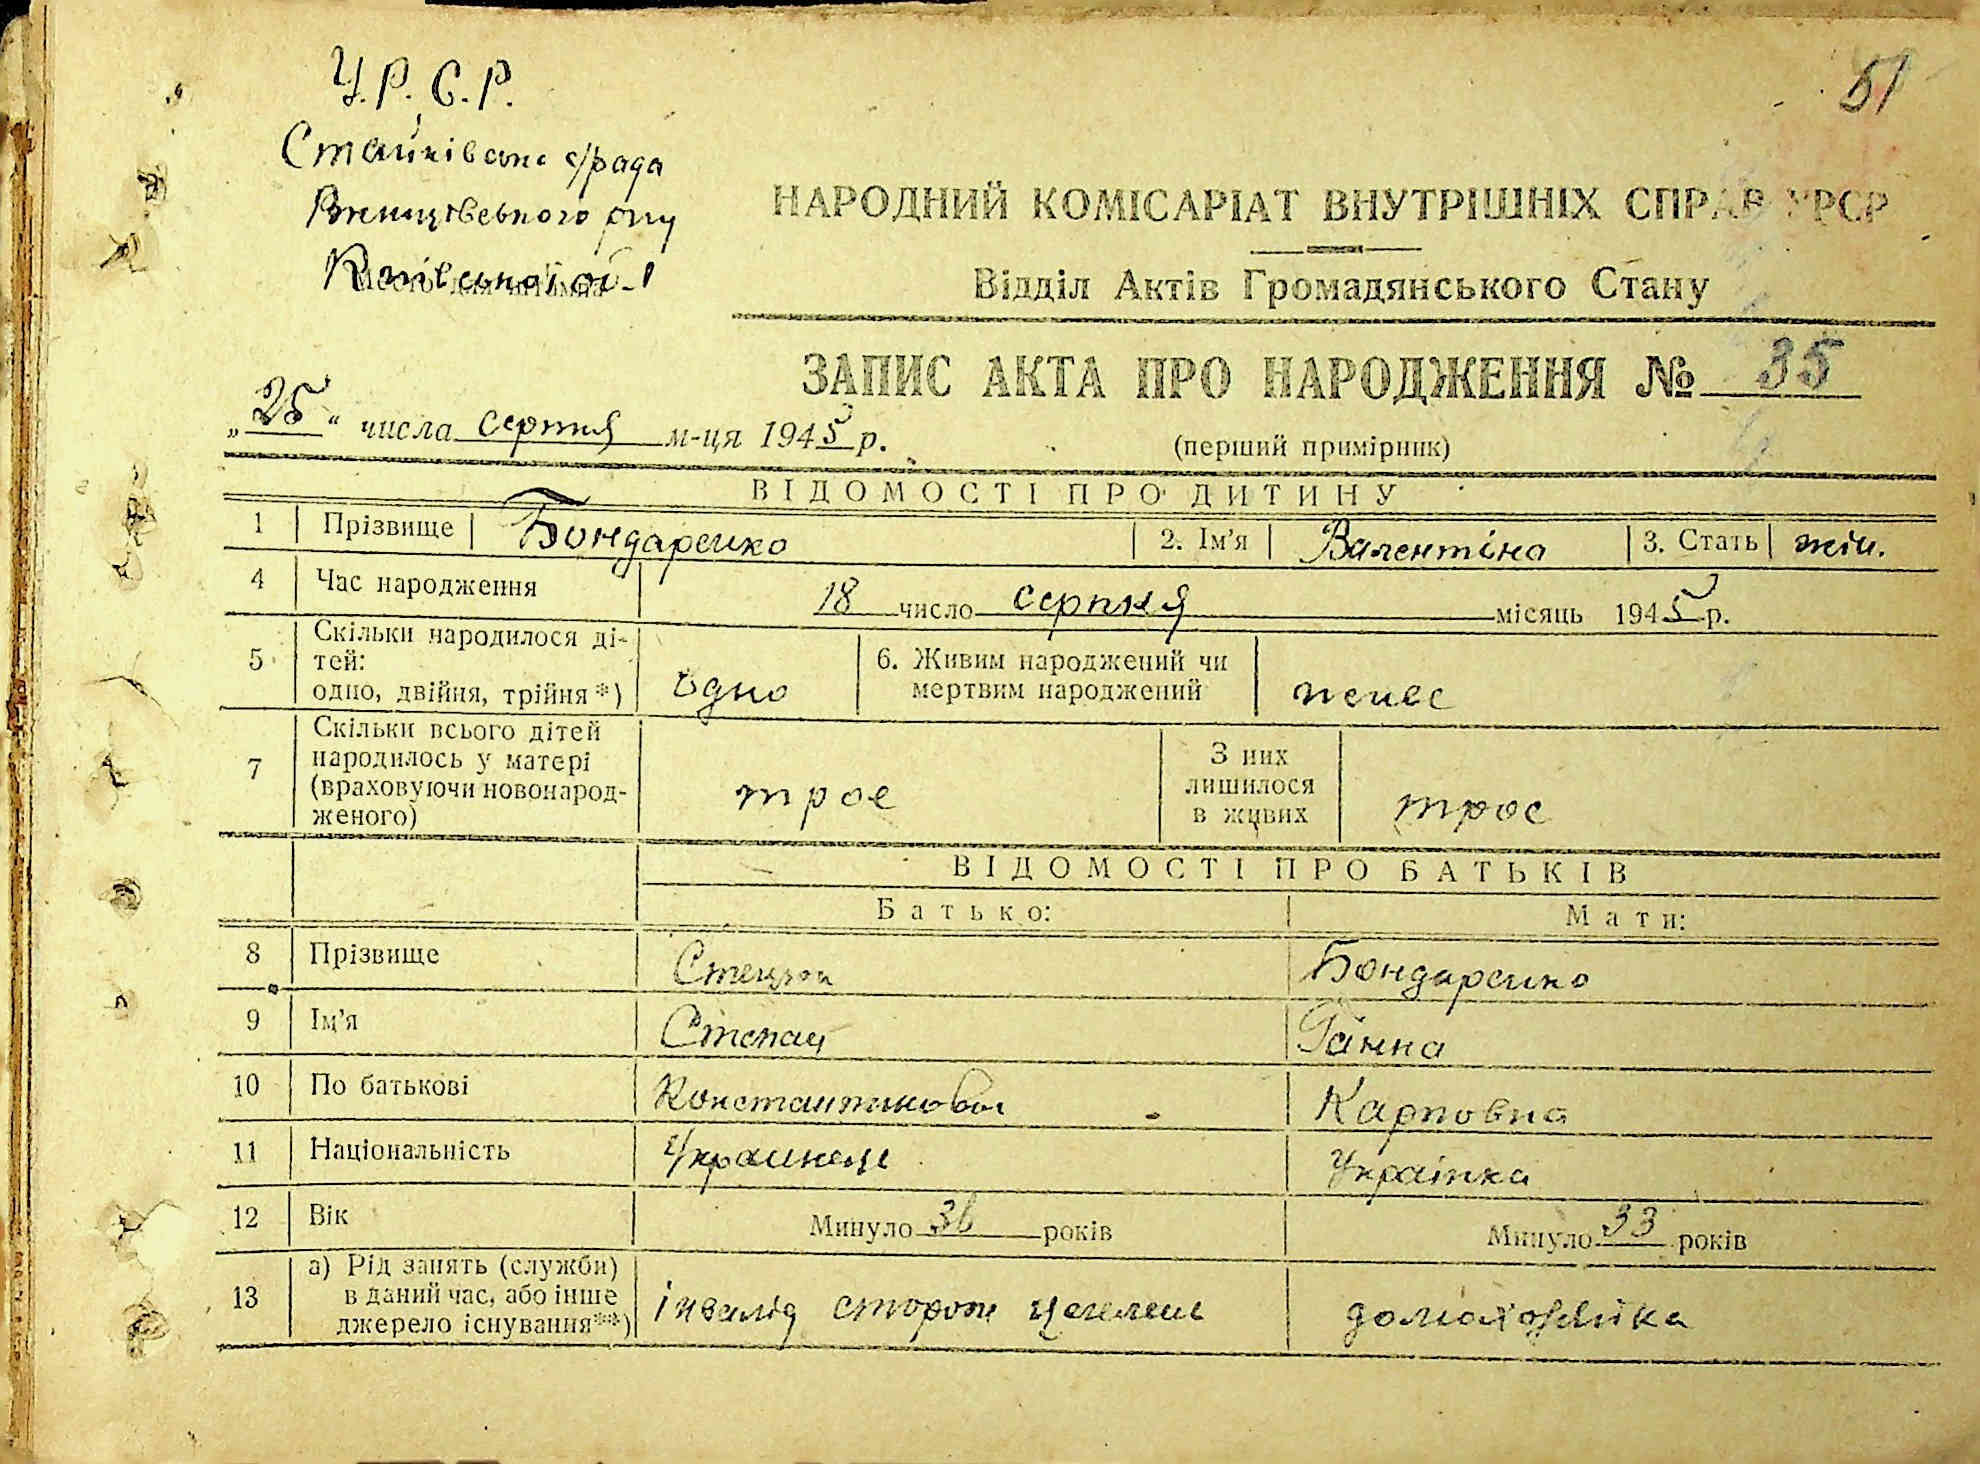 51
У.Р.С.Р.
Стайківська с/рада
Ржищівського р-ну
Київської обл
НАРОДНИЙ КОМІСАРІАТ ВНУТРІШНІХ СПРАВ УРСР
Відділ Актів Громадянського Стану
ЗАПИС АКТА ПРО НАРОДЖЕННЯ № 35
„25" числа серпня м-ця 1945 р.
(перший примірник)
ВІДОМОСТІ ПРО ДИТИНУ
1 Прізвище Бондаренко 2. Ім'я Валентіна 3. Стать жін.
4 Час народження 18 число серпня місяць 1945 р.
5 Скільки народилося ді-
тей:
одно, двійня, трійня*) одно
6. Живим народжений чи
мертвим народжений живе
7 Скільки всього дітей
народилось у матері
(враховуючи новонарод-
женого) троє
З них
лишилося
в живих троє
ВІДОМОСТІ ПРО БАТЬКІВ
Батько: Мати:
8 Прізвище Бондаренко
9 Ім'я Степан Ганна
10 По батькові Константинович Карповна
11 Національність Украинець Українка
12 Вік Минуло 36 років Минуло 33 років
13 а) Рід занять (служби)
в даний час, або інше
джерело існування**) інвалід сторож домохозяйка